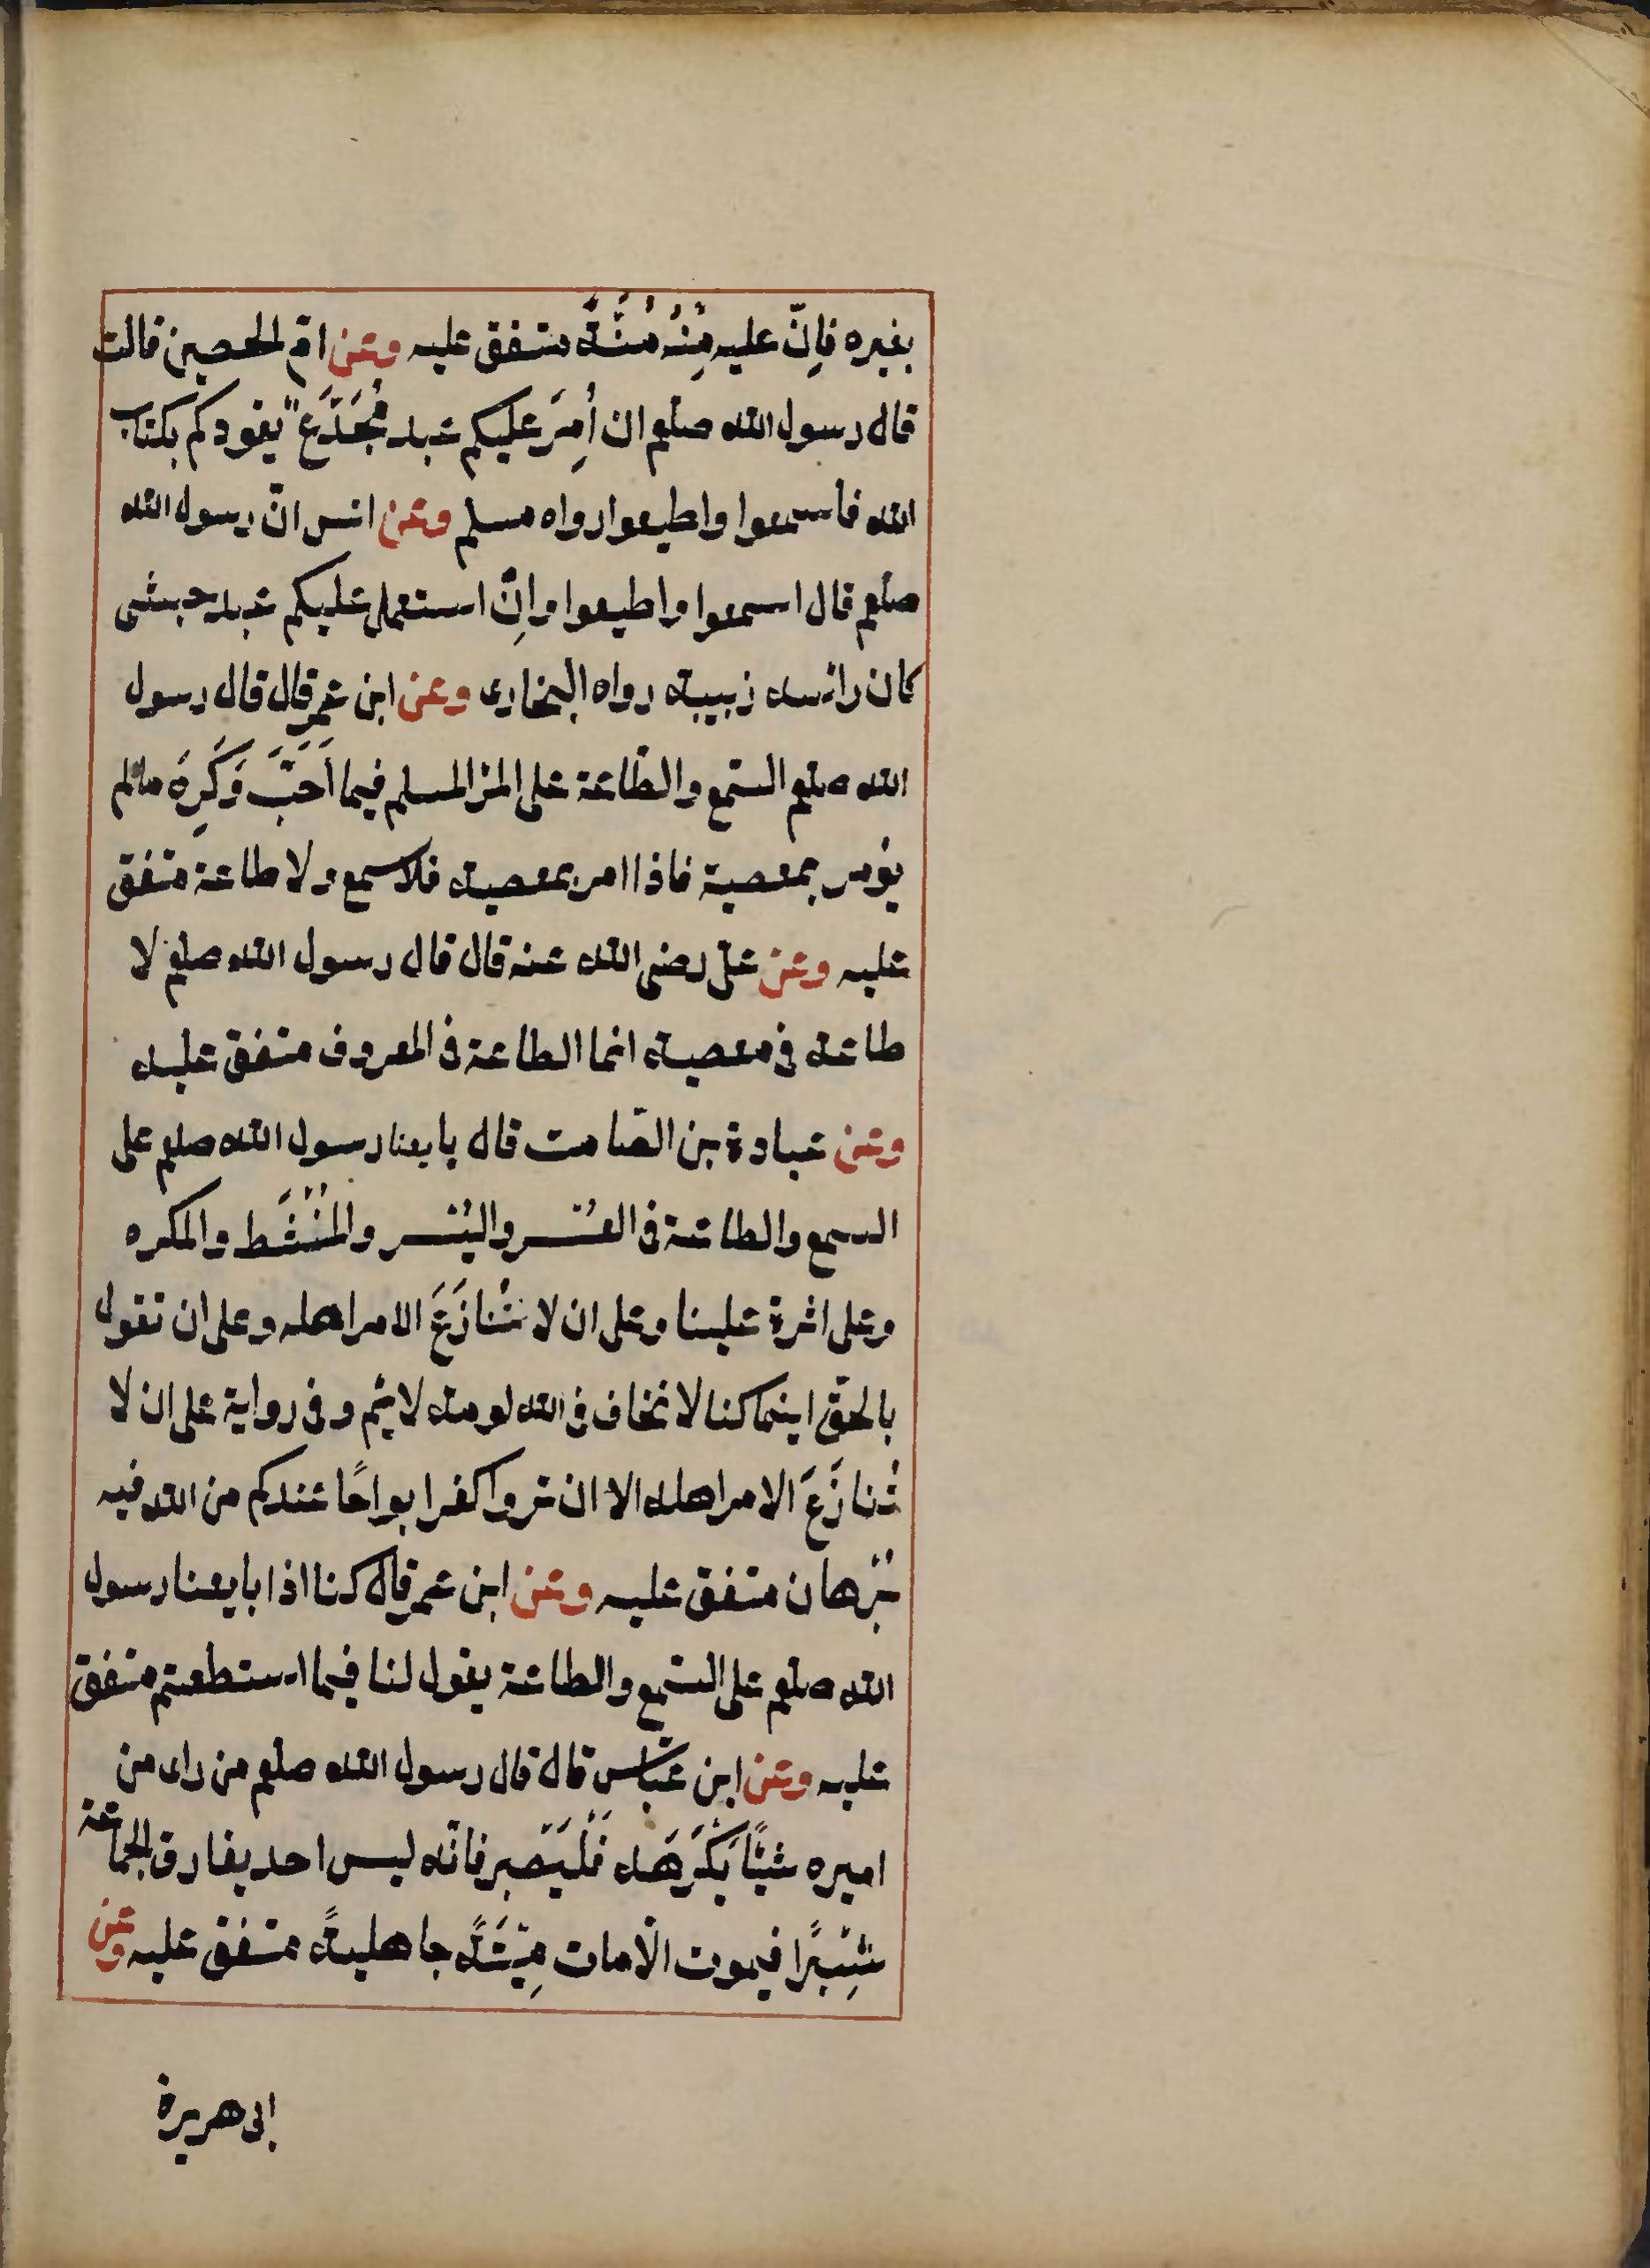 بغيره فاِنّ عليه مِنْهُ مُنَّةً متفق عليه وعن امّ الحصين قالت
قال رسول الله صلعم ان أُمِرَ عليكم عبد مُجَدَّعٌ يقودكم بكتاب
الله فاسمعوا واطيعوا رواه مسلم وعن انس انّ رسول الله
صلعم قال اسمعوا واطيعوا واِنْ استعمل عليكم عبد حبشى
كان رائسه زبيبة رواه البخارى وعن ابن عمر قال قال رسول
الله صلعم السّمع والطّاعة على المرْ المسلم فيما اَحَبَّ وَكَرِهَ مالم
يؤمر بمعصية فاذا امر بمعصية فلا سمع ولا طاعة متفق
عليه وعن على رضى الله عنه قال قال رسول الله صلعم لا
طاعة فى معصية انما الطاعة فى المعروف متفق عليه
وعن عبادة بن الصّامت قال بايعنا رسول الله صلعم على
السمع والطاعة فى العُسْر واليُسْر والمَنْشَط والمكره
وعلى اثرة علينا وعلى ان لا نُنازَعَ الامر اهله وعلى ان نقول
بالحقّ اينما كنا لا نخاف فى الله لومة لائم وفى رواية على ان لا
نُنازَعَ الامر اهله الا ان تروا كفرا بواحًا عندكم من الله فيه
بُرْهان متفق عليه وعن ابن عمر قال كنا اذا بايعنا رسول
الله صلعم على السّمع والطاعة يقول لنا فيما استطعتم متفق
عليه وعن ابن عبّاس قال قال رسول الله صلعم من راى من
اميره شيئًا يَكْرَهه فَلْيَصبر فانّه ليس احد يفارق الجماعة
شِبْرًا فيموت الّا مات مِيْتَةً جاهليةً متفق عليه وعن
ابى هريرة